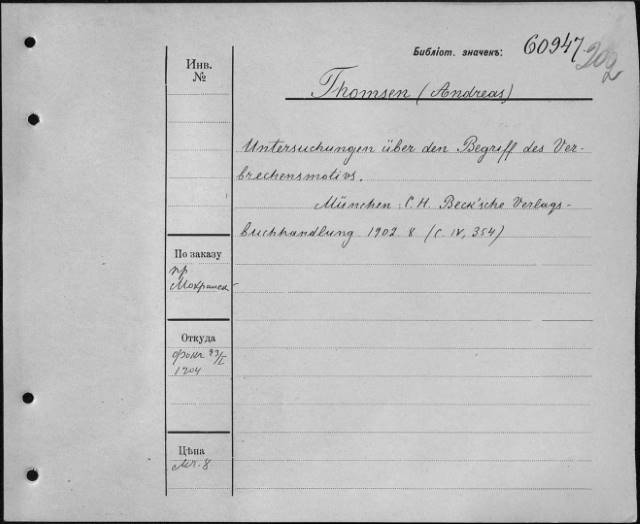 Библіот. значекъ: 60947
202
Инв.
№
Thomsen (Andreas)
Untersuchungen über den Begriff des Ver-
brechensmotivs.
München: C. H. Beck'sche Verlags-
buchhandlung 1902. 8 (С. IV, 354)
По заказу
пр
Откуда
1904
Цѣна
Мк. 8